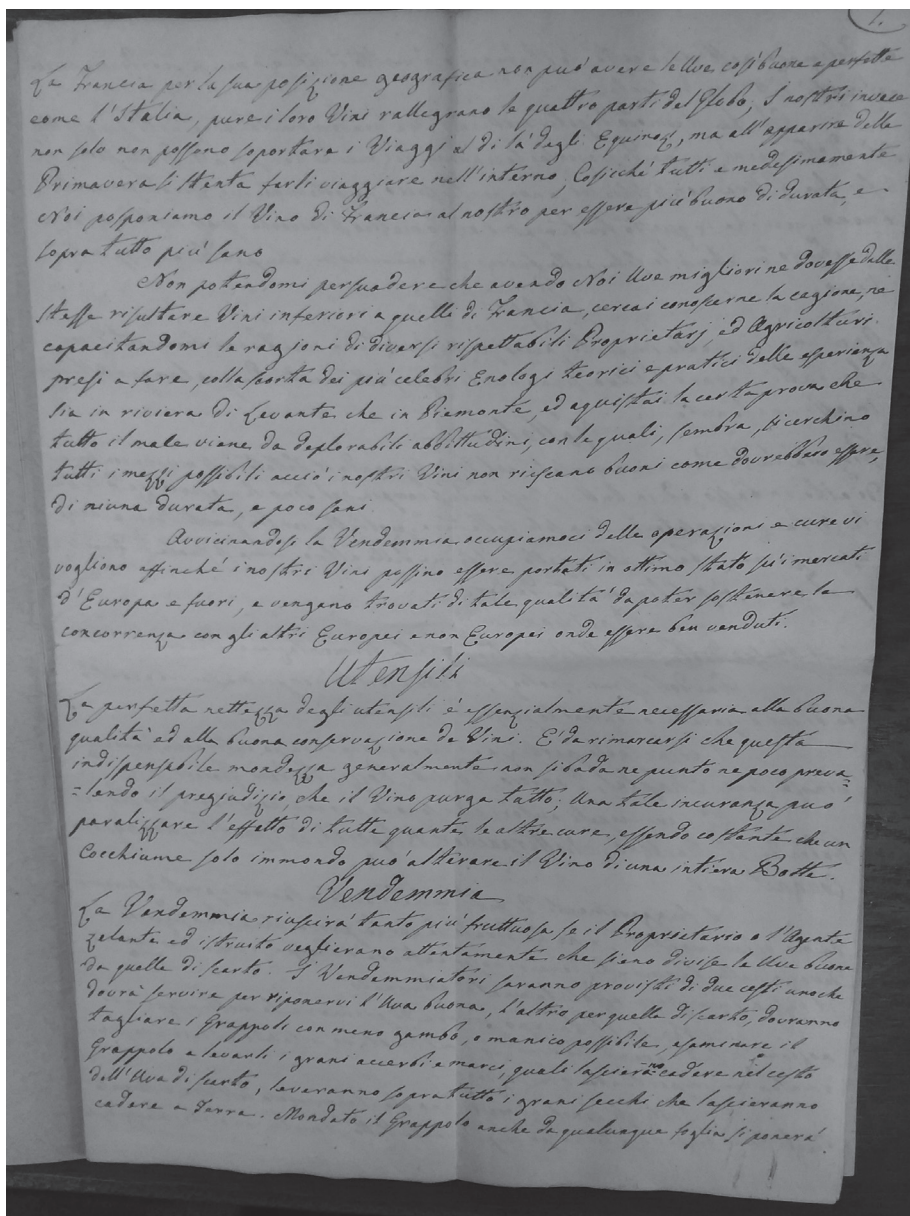 1.
La Francia per la sua posizione geografica non può avere le Uve così buone e perfette
come l'Italia, pure i loro Vini rallegrano le quattro parti del Globo, I nostri invece
non solo non possono soportare i Viaggi al di là degli Equinoz, ma all'apparire della
Primavera si stenta farli viaggiare nell'interno, Cosicché tutti e medesimamente
Noi posponiamo il Vino di Francia al nostro per essere più buono di durata, e
sopra tutto più sano
Non potendomi persuadere che avendo Noi Uve migliori ne dovesse dalle
stesse risultare Vini inferiori a quelli di Francia, cercai conoscerne la cagione, ne
capacitandomi le ragioni di diversi rispettabili Proprietarj, ed Agricoltori
presi a fare, colla scorta dei più celebri Enologi teorici e pratici delle esperienze
sia in riviera di Levante che in Piemonte, ed aquistai la certa prova che
tutto il male viene da deplorabili abbittudini, con le quali, sembra, si cerchino
tutti i mezzi possibili acciò i nostri Vini non riescano buoni come dovrebbero essere,
di niuna durata, e poco sani.
Avvicinandosi la Vendemmia occupiamoci delle operazioni e cure vi
vogliono affinché i nostri Vini possino essere portati in ottimo stato sù i mercati
d'Europa e fuori, e vengano trovati di tale qualità da poter sostenere la
concorrenza con gli altri Europei e non Europei onde essere ben venduti.
Utensili
La perfetta nettezza degli utensili é essenzialmente necessaria alla buona
qualità ed alla buona conservazione de Vini. E' da rimarcarsi che questa
indispensabile mondezza generalmente non si bada ne punto ne poco preva=
=lendo il pregiudizio, che il Vino purga tutto; Una tale incuranza può
paralizzare l'effetto di tutte quante le altre cure, essendo costante che un
Cocchiume solo immondo può alterare il Vino di una intiera Botte.
Vendemmia
La Vendemmia riuscirà tanto più fruttuosa se il Proprietario o l'Agente
zelante ed istruito veglierano attentamente che sieno divise le Uve buone
da quelle di scarto. I Vendemmiatori saranno provisti di due cesti uno che
dovrà servire per riponervi l'Uva buona, l'altro per quella di scarto, dovranno
tagliare i Grappoli con meno gambo, o manico possibile, esaminare il
Grappolo e levarli i grani accerbi e marci, quali lascieranno cadere nel cesto
dell'Uva di scarto, leveranno sopra tutto i grani secchi che lascieranno
cadere a Terra. Mondato il Grappolo anche da qualunque foglia si ponerà